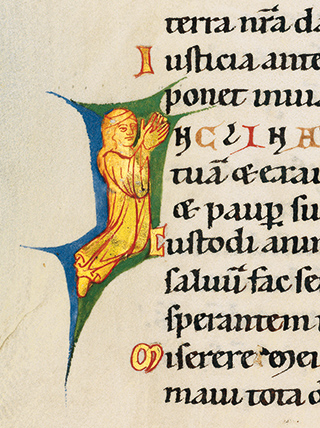 terra nr̄a da
Iusticia ante
ponet in uia
NCLINA
tuā & exau
& paup̲ su
Custodi anim
saluū fac se
sperantem
Miserere mei
maui tota d